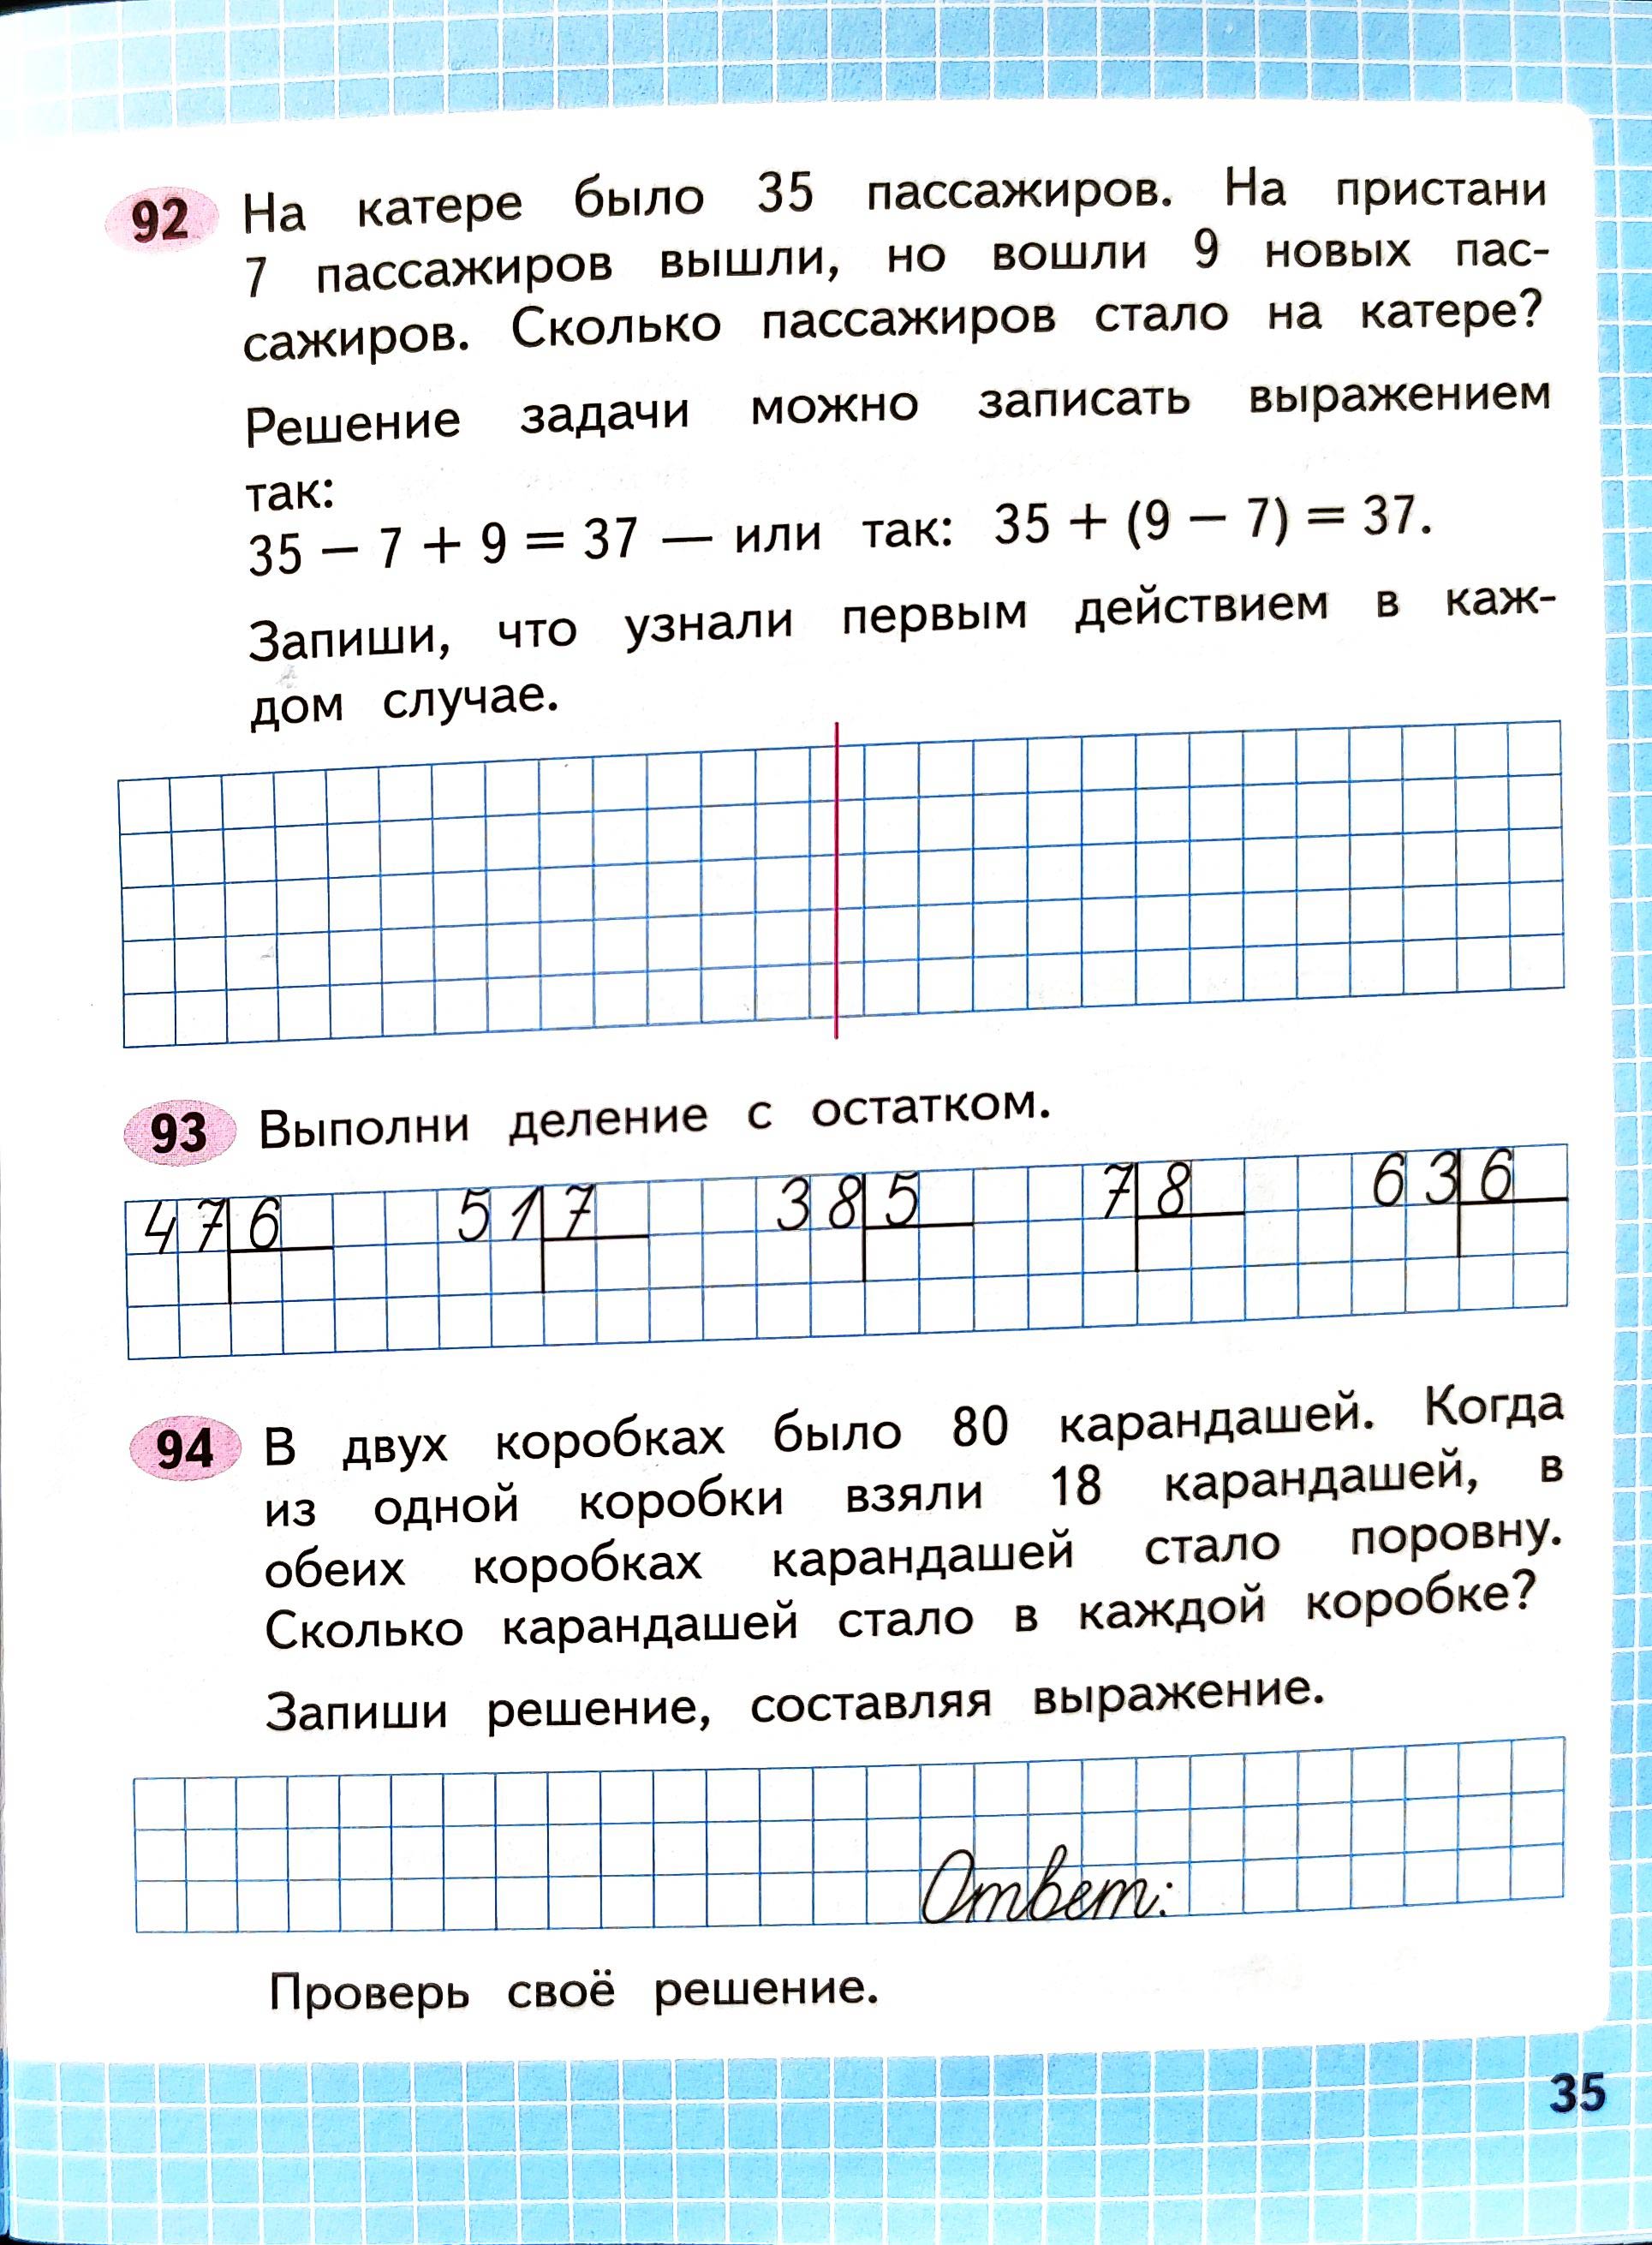 92 На катере было 35 пассажиров. На пристани
7 пассажиров вышли, но вошли 9 новых пас-
сажиров. Сколько пассажиров стало на катере?
Решение задачи можно записать выражением
так:
35 − 7 + 9 = 37 — или так: 35 + (9 − 7) = 37.
Запиши, что узнали первым действием в каж-
дом случае.
93 Выполни деление с остатком.
47 6 51 7 38 5 7 8 63 6
94 В двух коробках было 80 карандашей. Когда
из одной коробки взяли 18 карандашей, в
обеих коробках карандашей стало поровну.
Сколько карандашей стало в каждой коробке?
Запиши решение, составляя выражение.
Ответ:
Проверь своё решение.
35